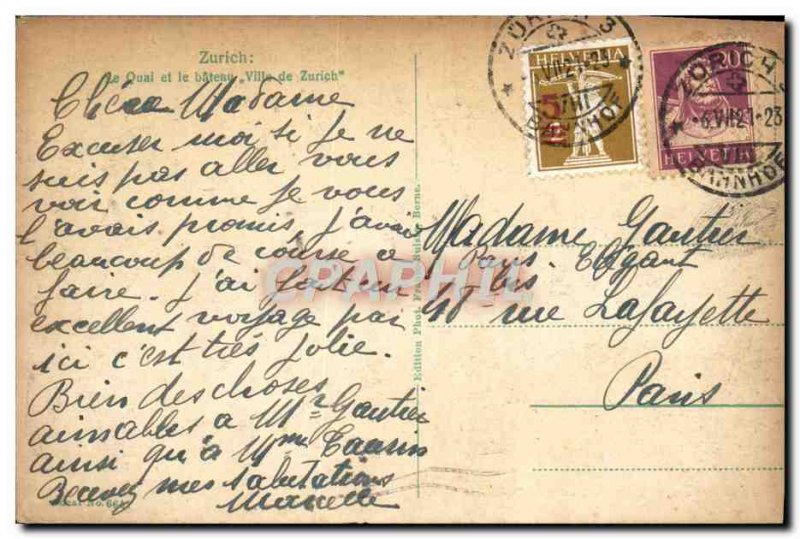 Zurich:
Le Quai et le bâteau „Ville de Zurich"
Chère Madame
Excuser moi si je ne
suis pas aller vous
voir comme je vous
l'avais promis, j'avai
beaucoup de course a
faire. J'ai fait un
excellent voyage par
ici c'est très jolie.
Bien des choses
aimables a Mr Gautier
ainsi qu'à Mme
Recevez mes salutations
Marcelle
No. 664
Edition Phot. Berne.
ZÜRICH 3
BAHNHOF
HELVETIA
5
ZÜRICH 3
-6.VII.21-23
BAHNHOF
20
HELVETIA
Madame Gautier
Paris Élégant
48 bis rue Lafayette
Paris
CPAPHIL